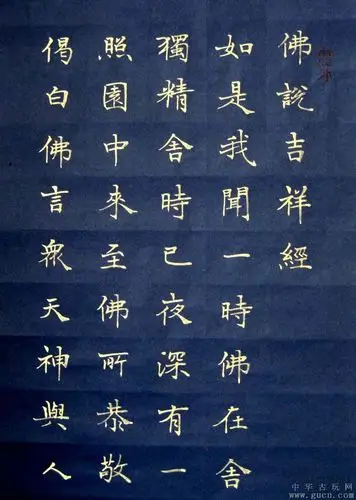 佛說吉祥經
如是我聞一時佛在舍
獨精舍時已夜深有一
照園中來至佛所恭敬
偈白佛言眾天神與人
中华古玩网
www.gucn.com